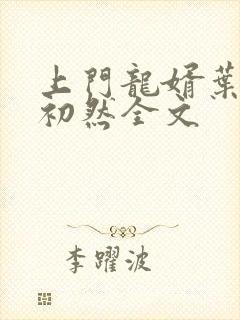 上門龍婿葉
初然全文
李躍波